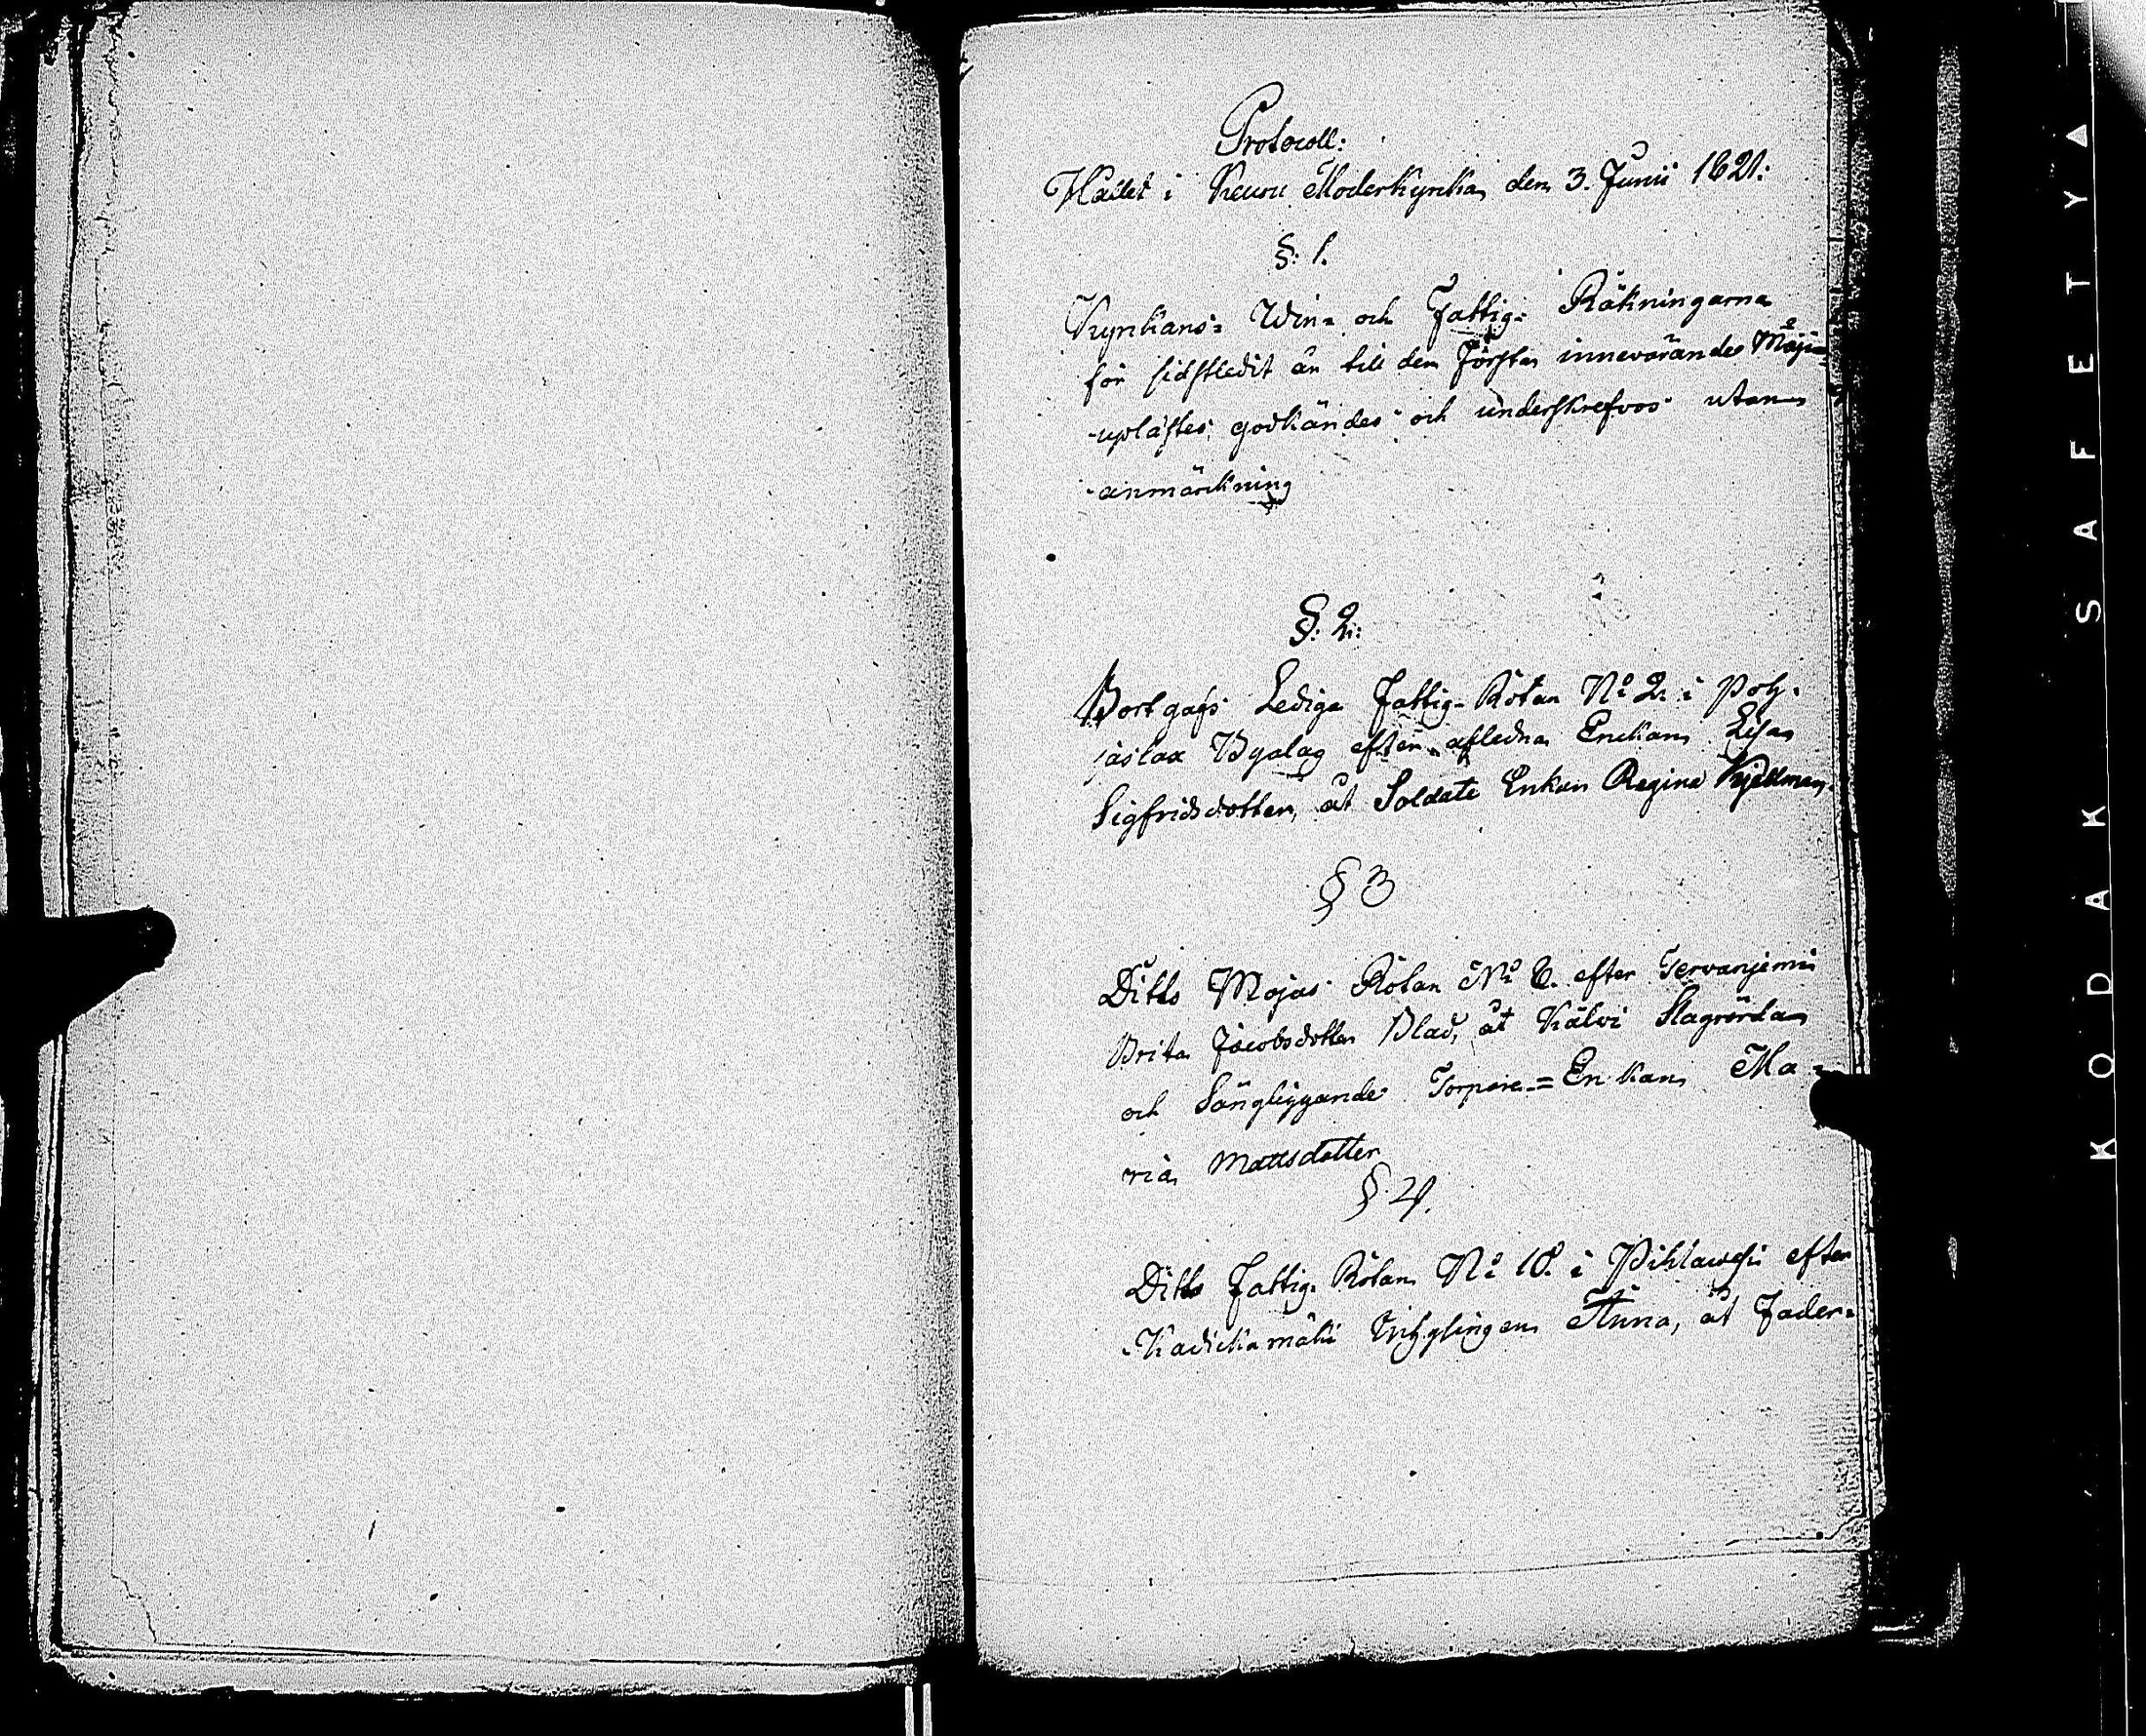 Protocoll:
Hållet i Keuru Moderkyrka den 3. Junii 1821:
§: 1.
Kyrkans= Win= och Fattig= Räkningarna
för sidstledit år till den Första innevarande Maji
uplästes godkändes och underskrefvos utan
anmärkning
§: 2:
Bortgafs Lediga Fattig-Rotan N:o 2. i Poh-
jaslax Byalag efter afledna Enkan Lisa
Sigfridsdotter, åt Soldate Enkan Regina Kjellman.
§ 3
Ditto Rotan N:o 6. efter Tervaniemi
Brita Jacobsdotter Blad, åt Kälvi Slagrörda
och Sängliggande Torpare=Enkan Ma=
ria Mattsdotter
§ 4.
Ditto Fattig-Rotan N:o 10. i Pihlawesi efter
Anna, åt Fader=
KODAK SAFETY A